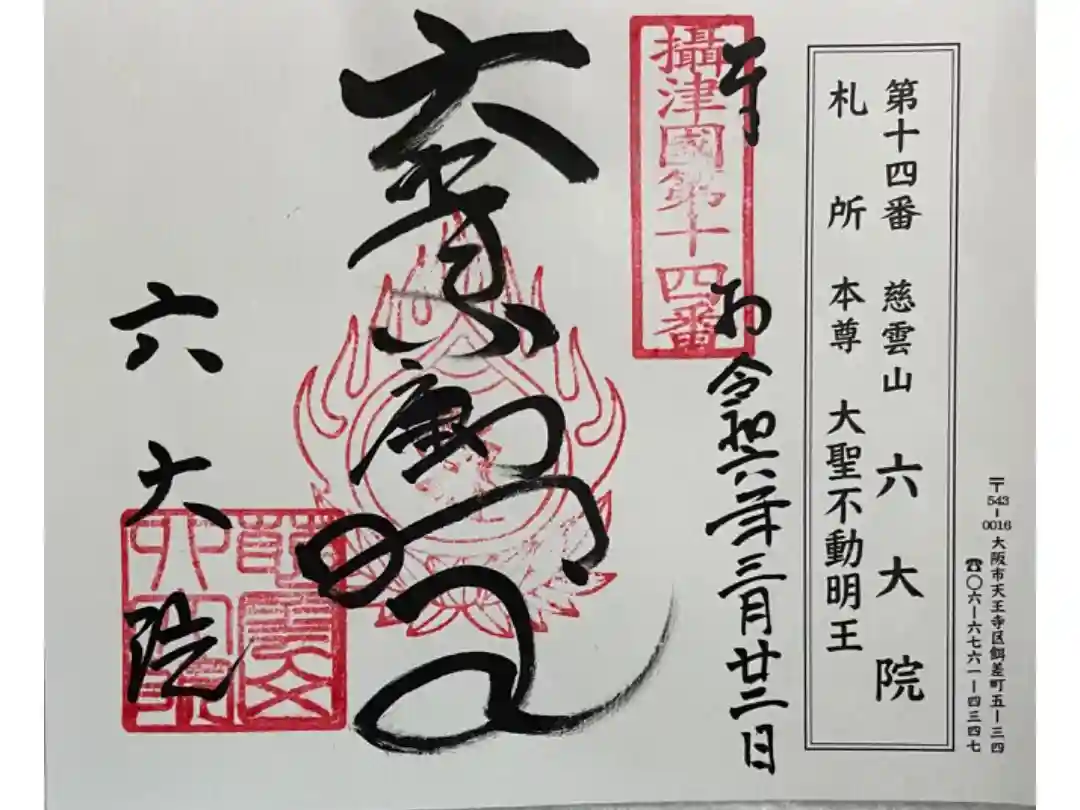 〒543-0016 大阪市天王寺区餌差町五ー三四
☎〇六ー六七六一ー四三四七
第十四番 慈雲山 六大院
札所 本尊 大聖不動明王
攝津國第十四番
令和六年三月廿二日
大聖不動明王
六大院
慈雲山
六大院